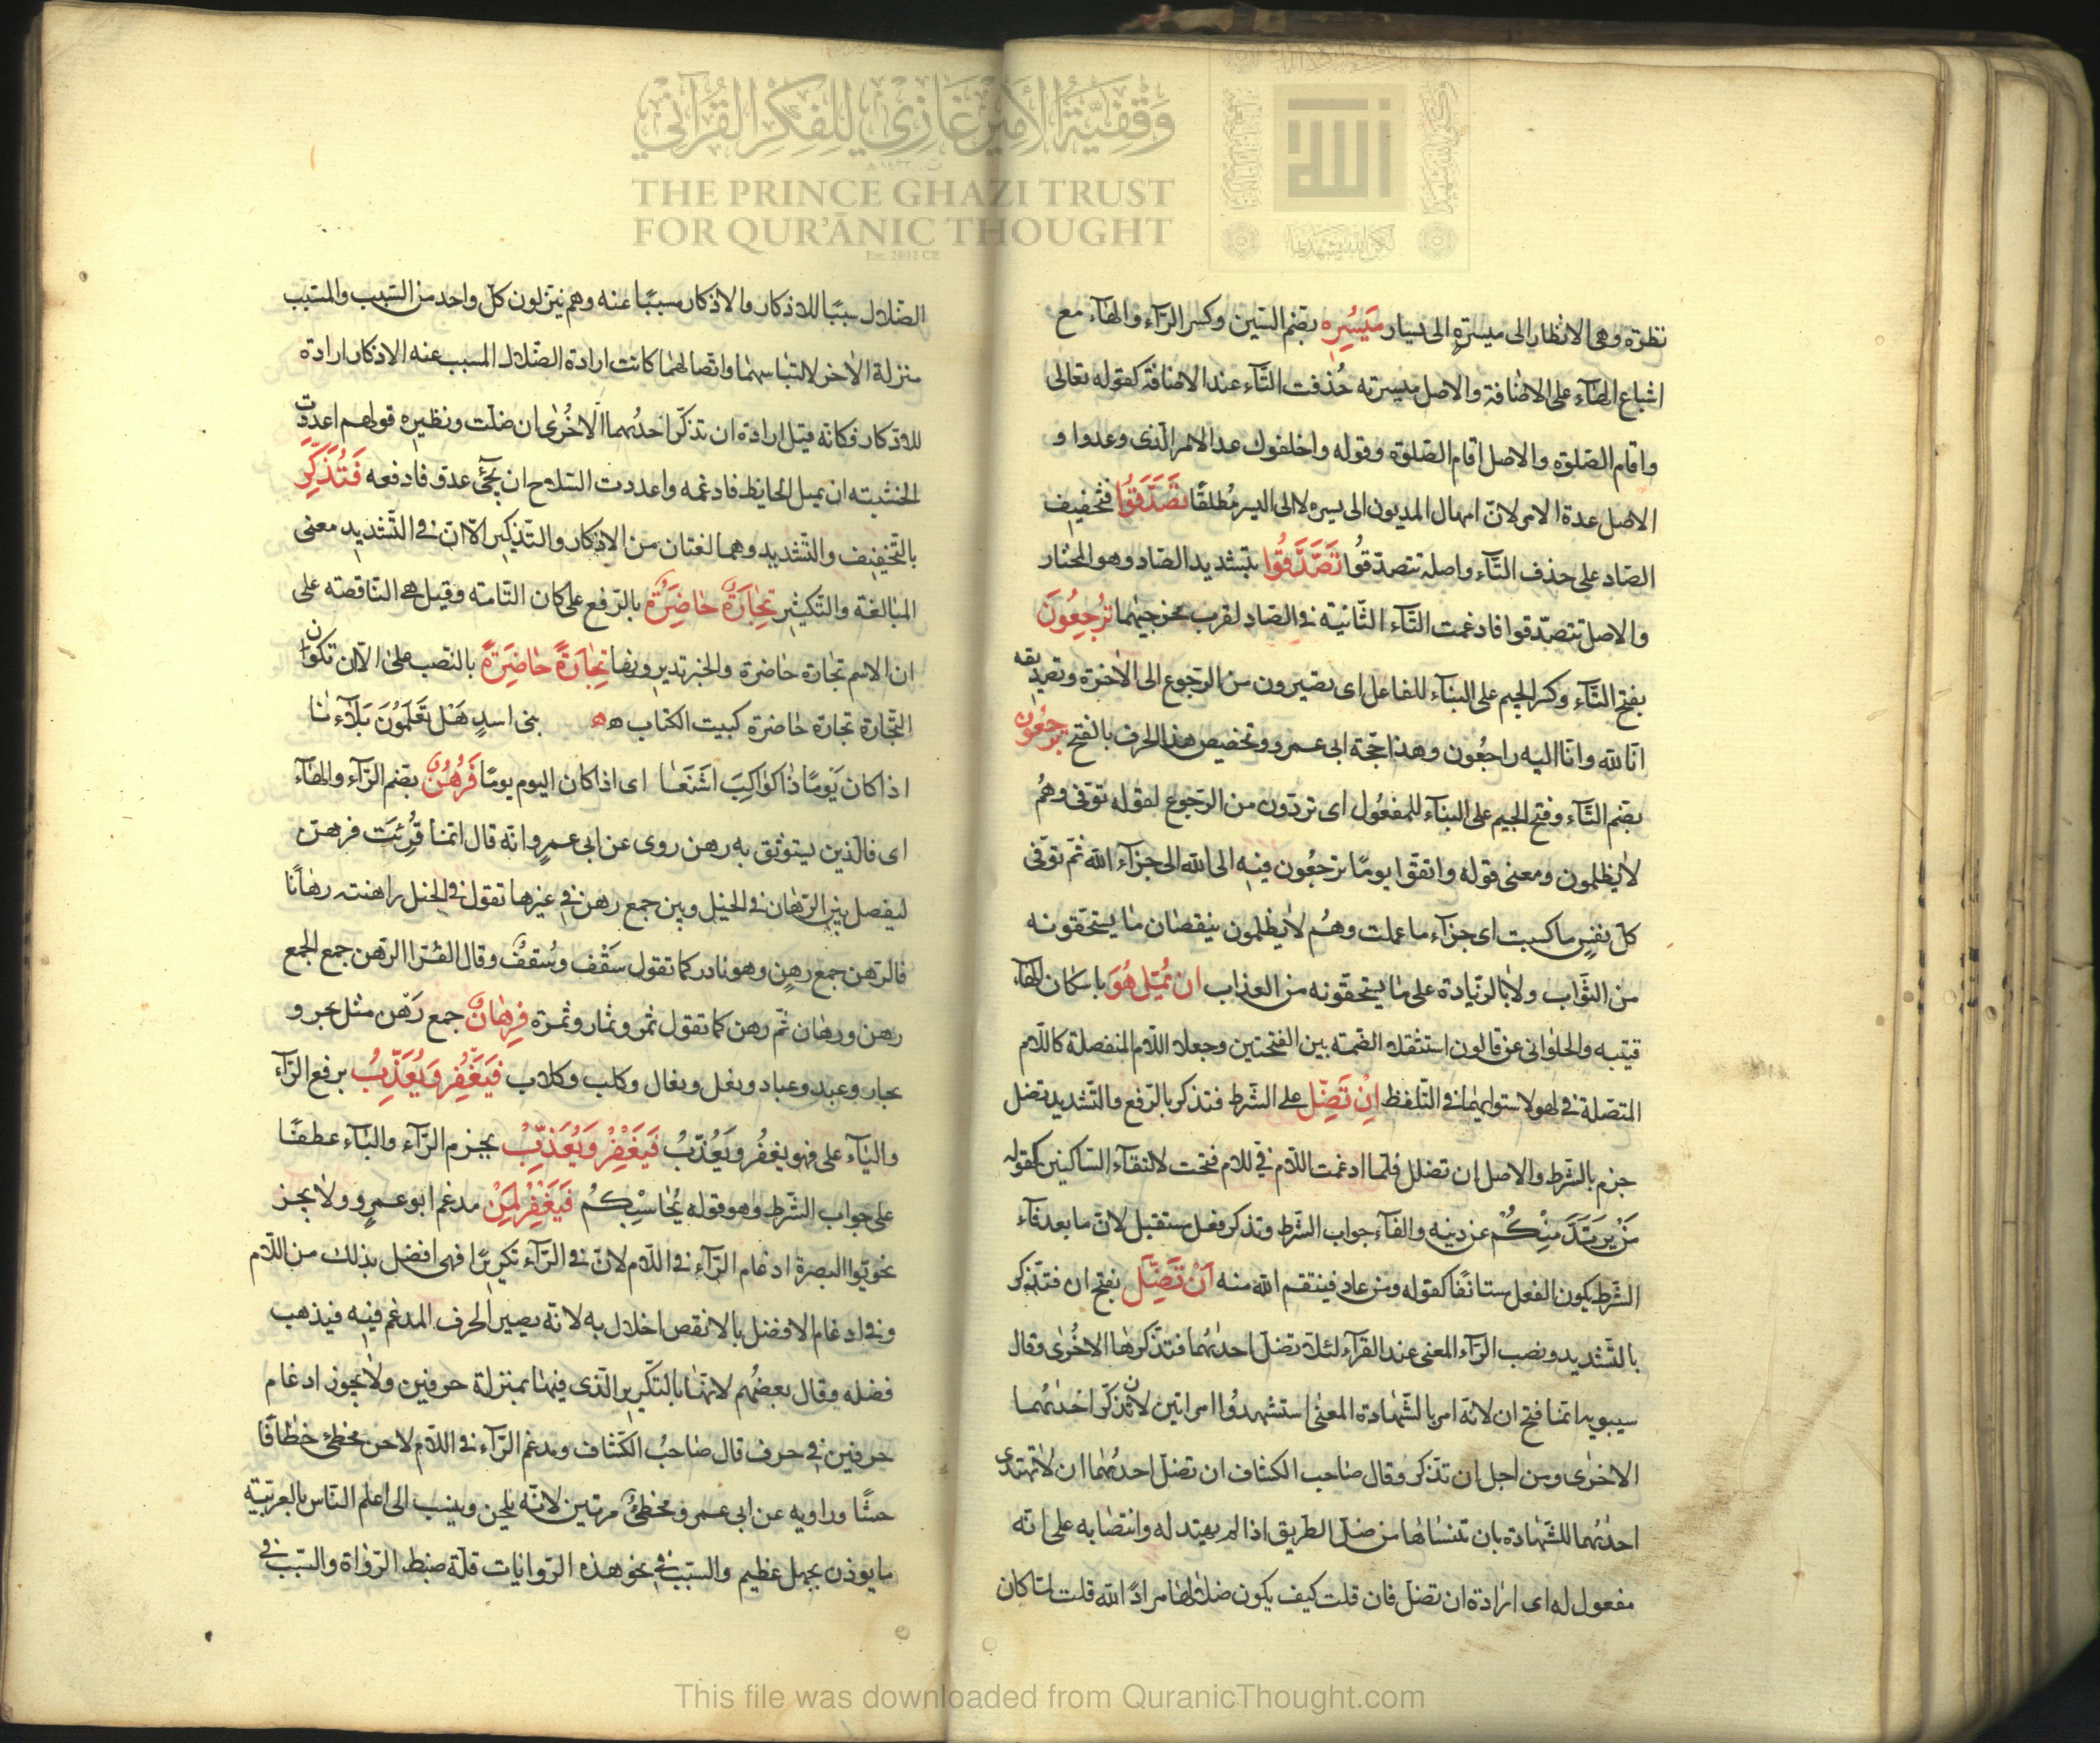 وَقْفِيَّةُ الأَمِيْرِ غَازِيْ لِلفِكْرِ القُرْآنِيّ
THE PRINCE GHAZI TRUST
FOR QUR'ĀNIC THOUGHT
Est. 2012 CE
نظرة وهى الانظار الى ميسرةٍ الى يسار مَيسُرِهِ بضم السّين وكسر الرّآء والهآء مع
اشباع الهآء على الاضافة والاصل ميسرته حُذفت التّآء عند الاضافة كقوله تعالى
واقام الصّلوة والاصل اقام الصّلوة وقوله واخلفوك عد الامر الّذى وعدوا و
الاصل عدة الامر لانّ امهال المديون الى يسره لا الى اليسر مُطلقًا تصَدَّقُوا بتخفيف
الصّاد على حذف التّآء واصله تتصدّقُوا تَصَّدَّقُوا بتشديد الصّاد وهو المختار
والاصل تتصدّقوا فادغمت التّآء الثّانية فى الصّاد لقرب مخرجيهما تَرْجِعُونَ
بفتح التّآء وكسر الجيم على البنآء للفاعل اى تصيرون من الرّجوع الى الاخرة وتصديقه
انّا لله وانّا اليه راجعُون وهذا حجّة ابى عمرو وتخصيص هذا الحرف بالفتح ترجعُون
بضم التّآء وفتح الجيم على البنآء للمفعُول اى تردّون من الرّجوع لقوله توفى وهُم
لا يظلمون ومعنى قوله واتقوا يومًا ترجعُون فيه الى الله الى جزآء الله ثمّ توفّى
كلّ نفسٍ ما كسبت اى جزآء ما عملت وهُم لا يظلمون بنقصان ما يستحقّونه
من الثّواب ولا بالزّيادة على ما يستحقّونه من العذاب ان يُمِلّ هُوَ باسكان الهآء
قتيبه والحلوانى عن قالون استثقلا الضّمة بين الفتحتين وجعلا اللّام المنفصلة كاللّام
المتصلة فى لهو لاستوائهما فى التّلفظ اِنْ تَضِلّ على الشّرط فتذكر بالرّفع والتّشديد تضل
جزم بالشّرط والاصل ان تضلل فلمّا ادغمت اللّام فى للام فتحت لالتقآء السّاكنين كقوله
مَنْ يَرتَدَّ مِنْكُمْ عن دينه والفآء جواب الشّرط وتذكر فعل مستقبل لانّ ما بعد فآء
الشّرط يكون الفعل مستانفًا كقوله ومن عاد فينتقم الله منه اَنْ تَضِلَّ بفتح ان فتذكر
بالتّشديد ونصب الرّآء المعنى عند القرآء لئلّا تضلّ احدٰىهُما فتذّكرها الاخُرٰى وقال
سيبويه انّما فتح ان لانّه امر بالشّهادة المعنى استشهدوُا امراتين لان تذكّر احْدٰىهُما
الاخرٰى ومن اجل ان تذكر وقال صاحب الكشاف ان تضلّ احدٰىهُما ان لا تهتدى
احدٰىهُما للشّهادة بان تنساها من ضلّ الطّريق اذا لم يهتد له وانتصابه على انّه
مفعول له اى ارادة ان تضلّ فان قلت كيف يكون ضلالها مرادًا لله قلت لمّا كان
الضّلال سببًا للاذكار والاذكار مسببًا عنه وهم ينزلون كلّ واحد من السّبب والمسبّب
منزلة الاخر لالتباسهما واتّصالهما كانت ارادة الضّلال المسبب عنه الاذكار ارادة
للاذكار فكانّه قيل ارادة ان تذكّر احدٰىهُما الاُخرٰى ان ضلّت ونظيره قولهم اعددت
الخشبته ان يميل الحايط فادعمه واعددت السّلاح ان يجئ عدوّ فادفعه فَتُذَكِّرَ
بالتّخفيف والتّشديد وهما لغتان من الاذكار والتّذكير الّا انّ فى التّشديد معنى
المبالغة والتّكثير تِجَارَةٌ حَاضِرَةٌ بالرّفع على كان التّامّه وقيل هى النّاقصه على
ان الاسم تجارة حاضرة والخبر تديرونها تِجَارَةً حَاضِرَةً بالنّصب على الّا ان تكون
التّجارة تجارة حاضرة كبيت الكتاب ه ه بنى اسدٍ هَل تَعْلَمُونَ بَلَاءنا
اذا كان يَوْمًا ذا كواكِبَ اشنَعَا اى اذا كان اليوم يومًا فَرُهُنٌ بضم الرّآء والهآء
اى فالّذين يستوثق به رهن روى عن ابى عمرٍو انّه قال انّما قُرِئتَ فرهن
ليفصل بين الرّهان فى الخيل وبين جمع رهن فى غيرها تقول فى الخيل راهنته رهانًا
فالرّهن جمع رهنٍ وهو نادر كما تقول سَقْف وسُقفٌ وقال الفرّا الرّهن جمع الجمع
رهن ورهان ثمّ رهن كما تقول ثمر وثمار وثمرة فَرِهانٌ جمع رَهْن مثل بحر و
بحار وعبد وعباد وبغل وبغال وكلب وكلاب فَيَغفِرُ وَيُعَذِّبُ برفع الرّآء
والبآء على فهو يغفرُ ويُعَذّبُ فَيَغْفِرْ وَيُعَذِّبْ بجزم الرّآء والبآء عطفًا
على جواب الشّرط وهو قوله يُحَاسِبكُم فَيَغْفِرْ لِمَنْ مدغم ابو عمرٍو ولا يجز
نحويّوا البصرة ادغام الرّآء فى اللّام لانّ فى الرّآء تكريرًا فهى افضل بذلك من اللّام
وفى ادغام الافضل بالانقص اخلال به لانّه يصير الحرف المدغم فيه فيذهب
فضله وقال بعضُهم لانّها بالتّكرير الّذى فيها بمنزلة حرفين ولا يجوز ادغام
حرفين فى حرف قال صَاحبُ الكشّاف ومدغم الرّآء فى اللّام لاحن مخطئ خطًا فًا
حشًا وراويه عن ابى عمرو مخطئ مرّتين لانّه يلحن وينسب الى اعلم النّاس بالعربيّة
ما يوذن بجهل عظيم والسّبب فى نحو هذه الرّوايات قلّة ضبط الرّواة والسّبب فى
This file was downloaded from QuranicThought.com